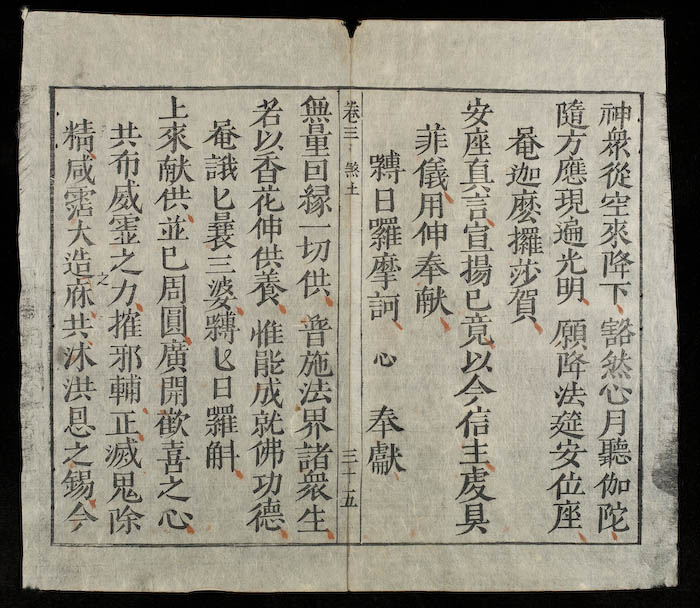 神衆從空來降下、豁然心月聽伽陀、
隨方應現遍光明、願降法筵安位座、
菴迦麽攞莎賀、
安座真言宣揚已竟、以今信主虔具
菲儀、用伸奉献、
嚩日羅摩訶、心 奉獻、
卷三 煞土 三十五
無量因縁一切供、普施法界諸衆生、
若以香花伸供養、惟能成就佛功德、
菴誐㔫曩三婆嚩㔫日羅斛、
上來献供、並已周圓、廣開歡喜之心、
共布威灵之力、摧邪輔正、滅鬼除
精、咸霑大造之庥、共沐洪恩之錫、今